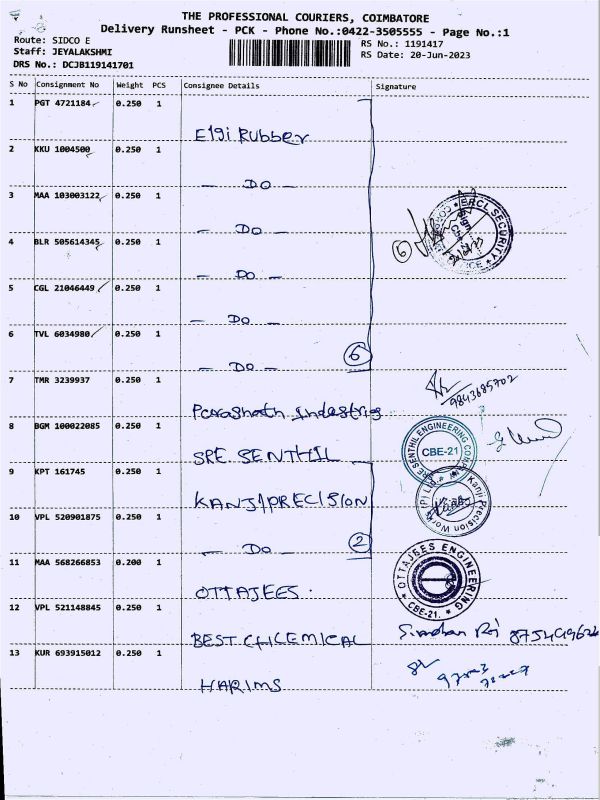 THE PROFESSIONAL COURIERS, COIMBATORE
Delivery Runsheet - PCK - Phone No.:0422-3505555 - Page No.:1
Route: SIDCO E
Staff: JEYALAKSHMI
DRS No.: DCJB119141701
RS No.: 1191417
RS Date: 20-Jun-2023
S No Consignment No Weight PCS Consignee Details Signature
1 PGT 4721184 0.250 1
Elgi Rubber
2 KKU 1004500 0.250 1
— DO —
3 MAA 103003122 0.250 1
— DO —
ERCL SECURITY
4 BLR 505614345 0.250 1
6
— DO —
5 CGL 21046449 0.250 1
— DO —
6 TVL 6034980 0.250 1
— DO — 6
7 TMR 3239937 0.250 1
9843685702
Parashath Industries
8 BGM 100022085 0.250 1
SRE SENTHIL
SENTHIL ENGINEERING
CBE-21
9 KPT 161745 0.250 1
KANJI PRECISION
Kanji Precision Works (P) Ltd.
10 VPL 520901875 0.250 1
— DO — 2
11 MAA 568266853 0.200 1
OTTAJEES.
OTTAJEES ENGINEERING
CBE-21.
12 VPL 521148845 0.250 1
BEST CHLEMICAL
13 KUR 693915012 0.250 1
HARIMS